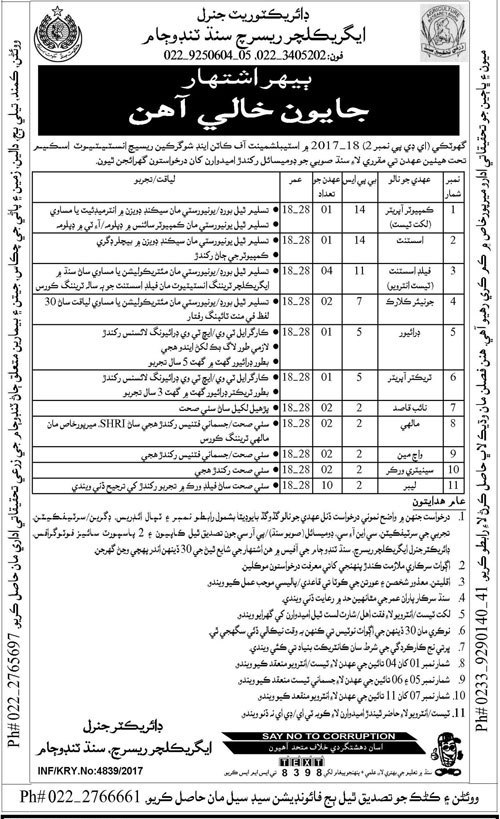 ڊائريڪٽوريٽ جنرل
ايگريڪلچر ريسرچ سنڌ ٽنڊوڄام
فون: 3405202_022, 05_9250604_022
ٻيهر اشتهار
جايون خالي آهن
گهوٽڪي (اي ڊي پي نمبر 2) 18_2017 ۾ اسٽيبلشمينٽ آف ڪاٽن اينڊ شوگرڪين ريسرچ انسٽيٽيوٽ اسڪيم
تحت هيٺين عهدن تي مقرري لاءِ سنڌ صوبي جو ڊوميسائل رکندڙ اميدوارن کان درخواستون گهرائجن ٿيون.
نمبر شمار | عهدي جو نالو | بي پي ايس | عهدن جو تعداد | عمر | لياقت/تجربو
1 | ڪمپيوٽر آپريٽر (لکت ٽيسٽ) | 14 | 01 | 18_28 | تسليم ٿيل بورڊ/يونيورسٽي مان سيڪنڊ ڊويزن ۾ انٽرميڊيٽ يا مساوي
تسليم ٿيل بورڊ/يونيورسٽي مان ڪمپيوٽر سائنس ۾ ڊپلوما/آءِ ٽي ۾ ڊپلوما
2 | اسسٽنٽ | 14 | 01 | 18_28 | تسليم ٿيل يونيورسٽي مان سيڪنڊ ڊويزن ۾ بيچلر ڊگري
ڪمپيوٽر جي ڄاڻ رکندڙ
3 | فيلڊ اسسٽنٽ (ٽيسٽ انٽرويو) | 11 | 04 | 18_28 | تسليم ٿيل بورڊ/يونيورسٽي مان مئٽرڪوليشن يا مساوي ساڻ سنڌ ۾
ايگريڪلچر ٽريننگ انسٽيٽيوٽ مان فيلڊ اسسٽنٽ جو ٻه سالا ٽريننگ ڪورس
4 | جونيئر ڪلارڪ | 7 | 02 | 18_28 | تسليم ٿيل بورڊ/يونيورسٽي مان مئٽرڪوليشن يا مساوي لياقت ساڻ 30
لفظ في منٽ ٽائپنگ رفتار
5 | ڊرائيور | 5 | 01 | 18_28 | ڪارگر ايل ٽي وي/ايڇ ٽي وي ڊرائيونگ لائسنس رکندڙ
لازمي طور لاگ بڪ لکڻ ايندو هجي
بطور ڊرائيور گهٽ ۾ گهٽ 5 سال تجربو
6 | ٽريڪٽر آپريٽر | 5 | 01 | 18_28 | ڪارگر ايل ٽي وي/ايڇ ٽي وي ڊرائيونگ لائسنس رکندڙ
بطور ٽريڪٽر ڊرائيور گهٽ ۾ گهٽ 3 سال تجربو
7 | نائب قاصد | 2 | 02 | 18_28 | پڙهيل لکيل ساڻ سٺي صحت
8 | مالهي | 2 | 02 | 18_28 | سٺي صحت/جسماني فٽنيس رکندڙ هجي ساڻ SHRI، ميرپورخاص مان
مالهي ٽريننگ ڪورس
9 | واچ مين | 2 | 02 | 18_28 | سٺي صحت/جسماني فٽنيس رکندڙ هجي
10 | سينيٽري ورڪر | 2 | 02 | 18_28 | سٺي صحت رکندڙ هجي
11 | ليبر | 2 | 10 | 18_28 | سٺي صحت ساڻ فيلڊ ورڪ ۾ تجربو رکندڙ کي ترجيح ڏني ويندي
عام هدايتون
1. درخواست جنهن ۾ واضح نموني درخواست ڏنل عهدي جو نالو گڏوگڏ بايو ڊيٽا بشمول رابطو نمبر ۽ ٽپال ائڊريس، ڊگرين/سرٽيفڪيٽن،
تجربي جي سرٽيفڪيٽن، سي اين آءِ سي، ڊوميسائل (صوبو سنڌ)/پي آر سي جون تصديق ٿيل ڪاپيون ۽ 2 پاسپورٽ سائيز فوٽوگرافس،
ڊائريڪٽر جنرل ايگريڪلچر ريسرچ، سنڌ ٽنڊوڄام جي آفيس ۾ هن اشتهار جي شايع ٿيڻ جي 30 ڏينهن اندر پهچي وڃڻ گهرجن
2. اڳواٽ سرڪاري ملازمت رکندڙ پنهنجي کاتي معرفت درخواستون موڪلين.
3. اقليتن معذور شخصن ۽ عورتن جي ڪوٽا تي قاعدي/پاليسي موجب عمل ڪيو ويندو
4. سنڌ سرڪار پاران عمر جي مٿانهين حد ۾ رعايت ڏني ويندي.
5. لکت ٽيسٽ/انٽرويو لاءِ فقط اهل/شارٽ لسٽ ٿيل اميدوارن کي گهرايو ويندو
6. نوڪري مان 30 ڏينهن جي اڳواٽ نوٽيس تي ڪنهن به وقت نيڪالي ڏئي سگهجي ٿي.
7. ڀرتي نج ڪارڪردگي جي شرط سان ڪانٽريڪٽ بنياد تي ڪئي ويندي.
8. شمار نمبر 01 کان 04 تائين جي عهدن لاءِ ٽيسٽ/انٽرويو منعقد ڪيو ويندو
9. شمار نمبر 05 ۽ 06 تائين جي عهدن لاءِ جسماني ٽيسٽ منعقد ڪيو ويندو
10. شمار نمبر 07 کان 11 تائين جي عهدن لاءِ انٽرويو منعقد ڪيو ويندو
11. ٽيسٽ/انٽرويو لاءِ حاضر ٿيندڙ اميدوارن لاءِ ڪوبه ٽي اي/ڊي اي نه ڏنو ويندو
ڊائريڪٽر جنرل
ايگريڪلچر ريسرچ، سنڌ ٽنڊوڄام
INF/KRY.No:4839/2017
SAY NO TO CORRUPTION
اسان دهشتگردي خلاف متحد آهيون
TEXT
8398
ووئڻن ۽ ڪڻڪ جو تصديق ٿيل ٻج فائونڊيشن سيڊ سيل مان حاصل ڪريو. Ph# 022_2766661
ووئڻن، ڪمند، تيلي ٻج، دالين، زمين ۽ پاڻي جي چڪاس، جيتن ۽ بيمارين متعلق ڄاڻ ٽنڊوڄام جي زرعي تحقيقاتي اداري مان حاصل ڪريو Ph# 022_2765697
ميون ۽ ڀاڄين جو تحقيقاتي ادارو ميرپورخاص ۾ ڪم ڪري رهيو آهي. هنن فصلن مان وڌيڪ لاڀ حاصل ڪرڻ لاءِ رابطو ڪريو. Ph# 0233_9290140_41